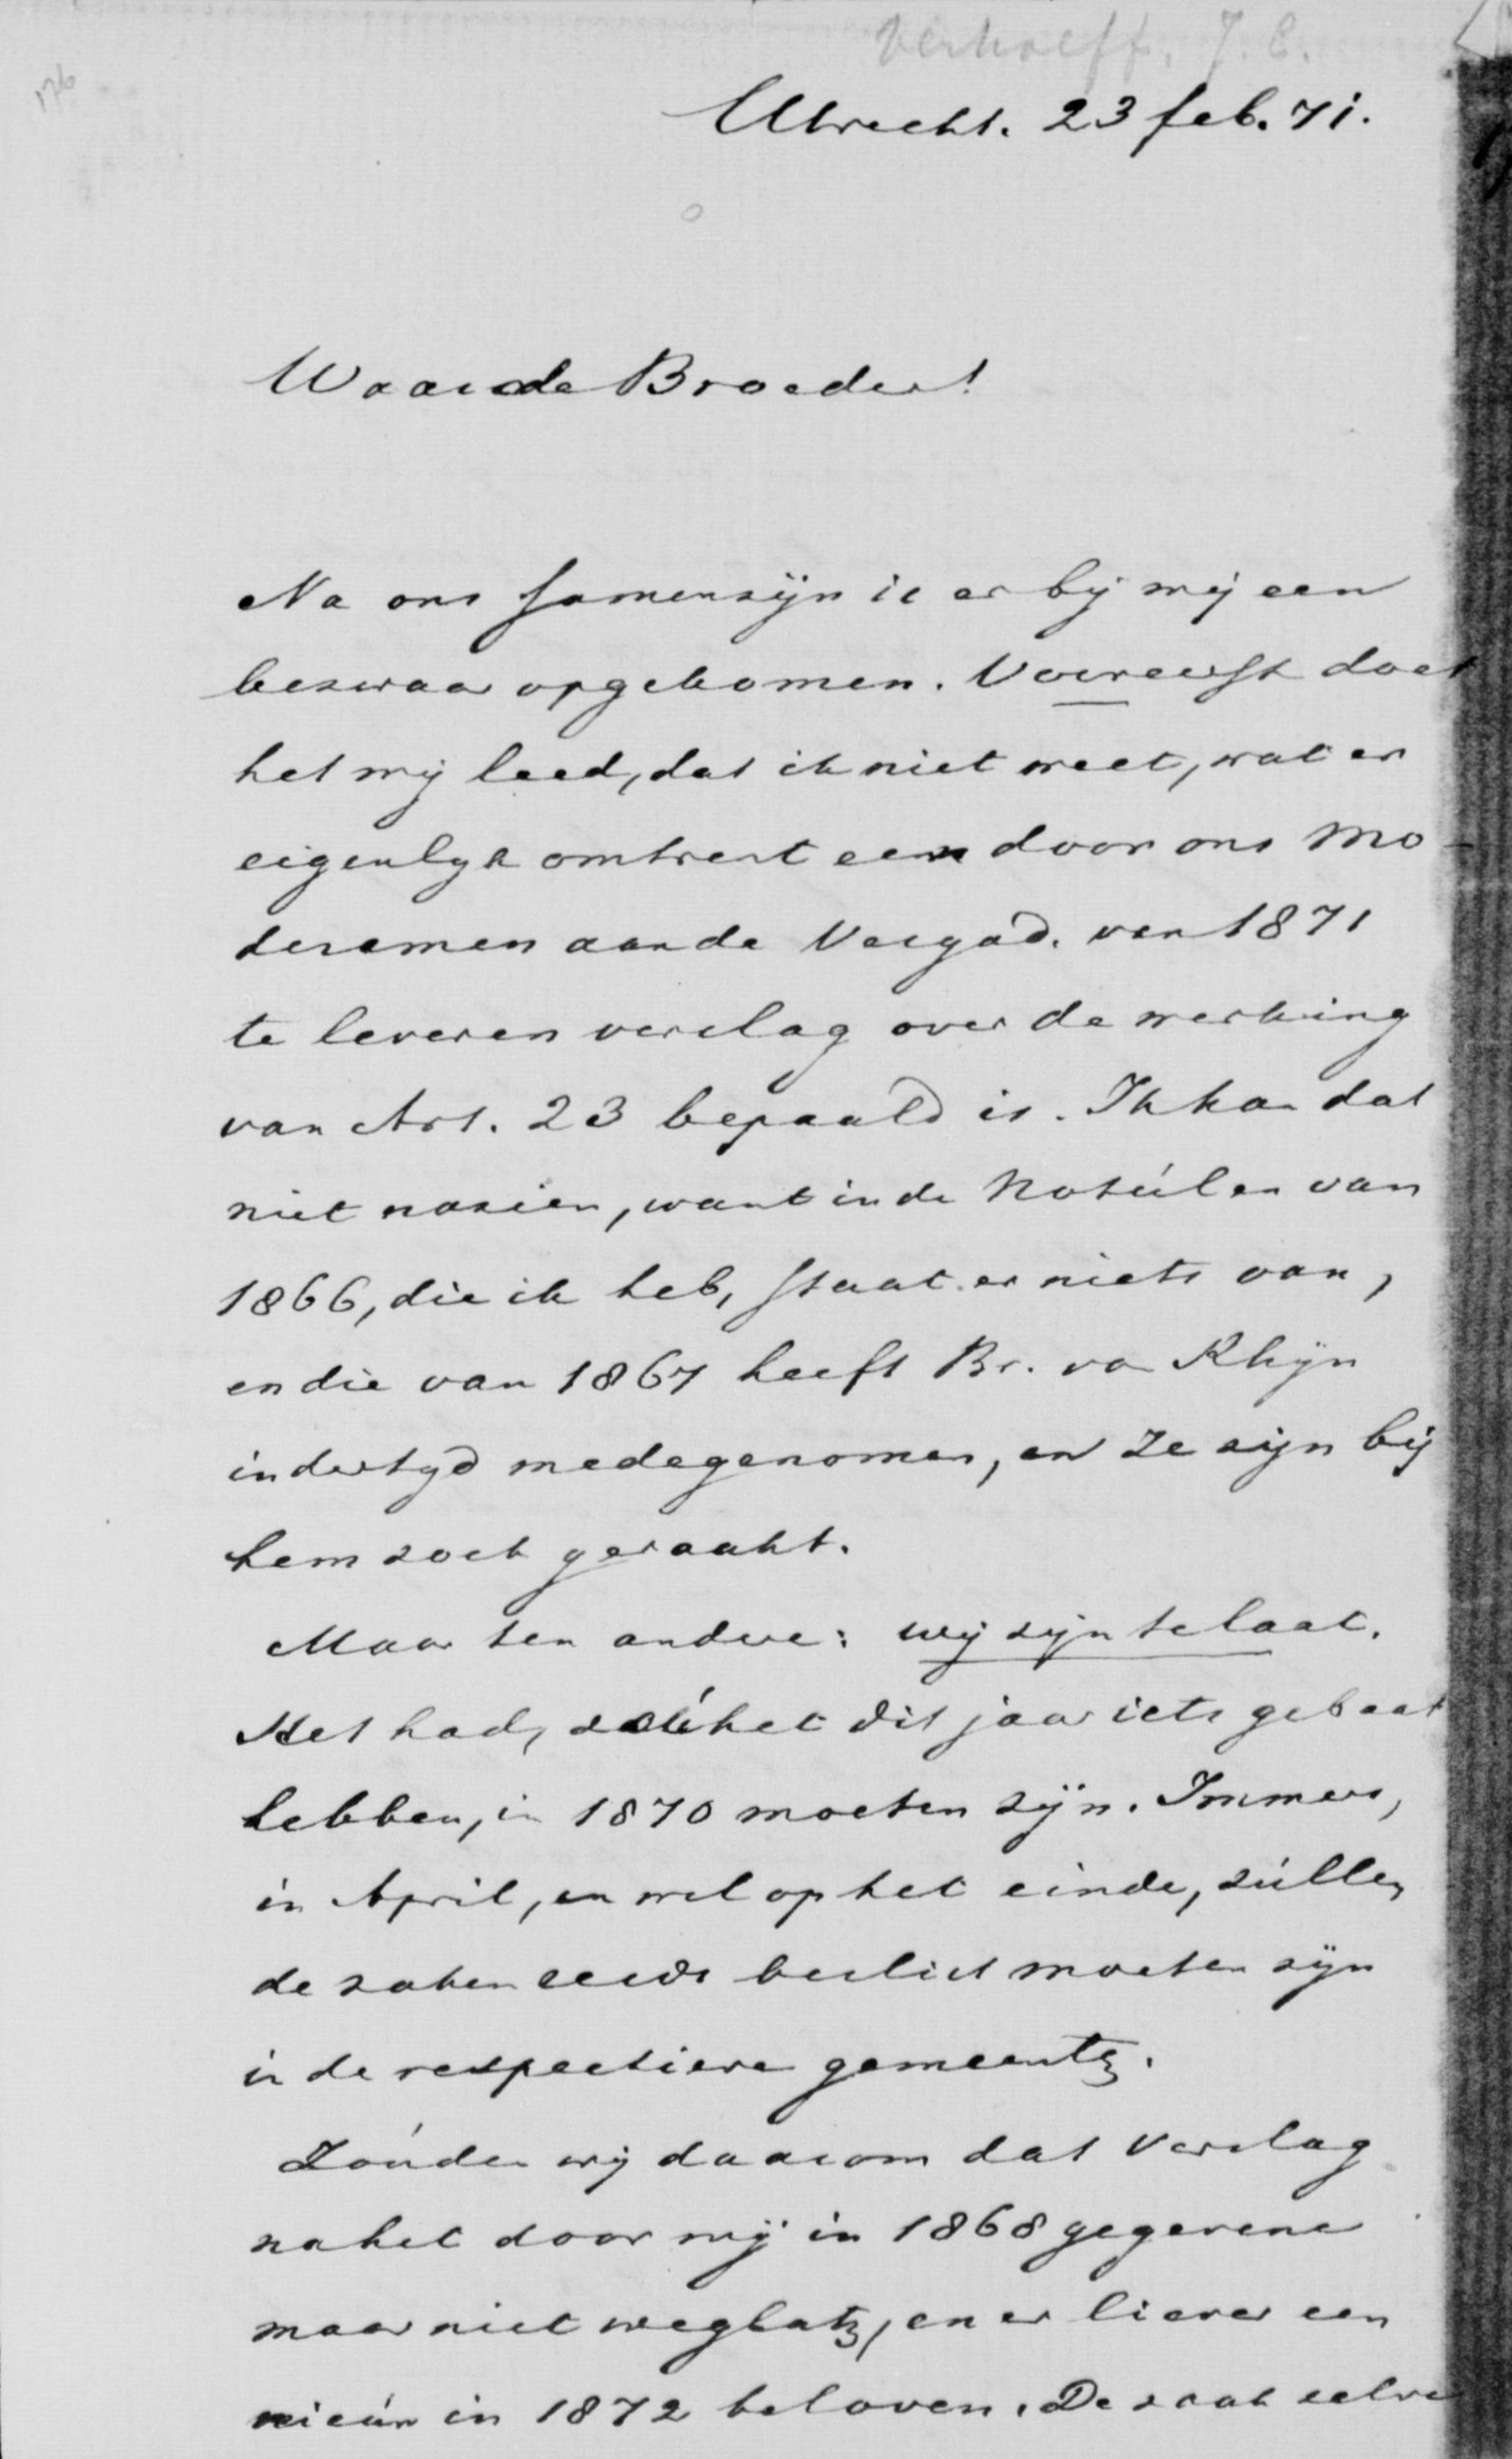 Verhoeff, J. E.
176
Utrecht. 23 feb. 71.
Waarde Broeder!
Na ons samenzijn is er bij mij een
bezwaar opgekomen. Vooreerst doet
het mij leed, dat ik niet weet, wat er
eigenlyk omtrent een door ons Mo-
deramen aan de Vergad. van 1871
te leveren verslag over de werking
van Art. 23 bepaald is. Ik kan dat
niet nazien, want in de Notúlen van
1866, die ik heb, staat er niets van,
en die van 1867 heeft Br. van Rhijn
indertyd medegenomen, en ze zijn bij
hem zoek geraakt.
Maar ten andere: wij zijn te laat.
Het had, zoú het dit jaar iets gebaat
hebben, in 1870 moeten zijn. Immers,
in April, en wel op het einde, zúllen
de zaken reeds beslist moeten zijn
in de respectieve gemeenten.
Zoúden wij daarom dat Verslag
na het door mij in 1868 gegevene
maar niet weglaten, en er liever een
nieúw in 1872 beloven. De zaak zelve